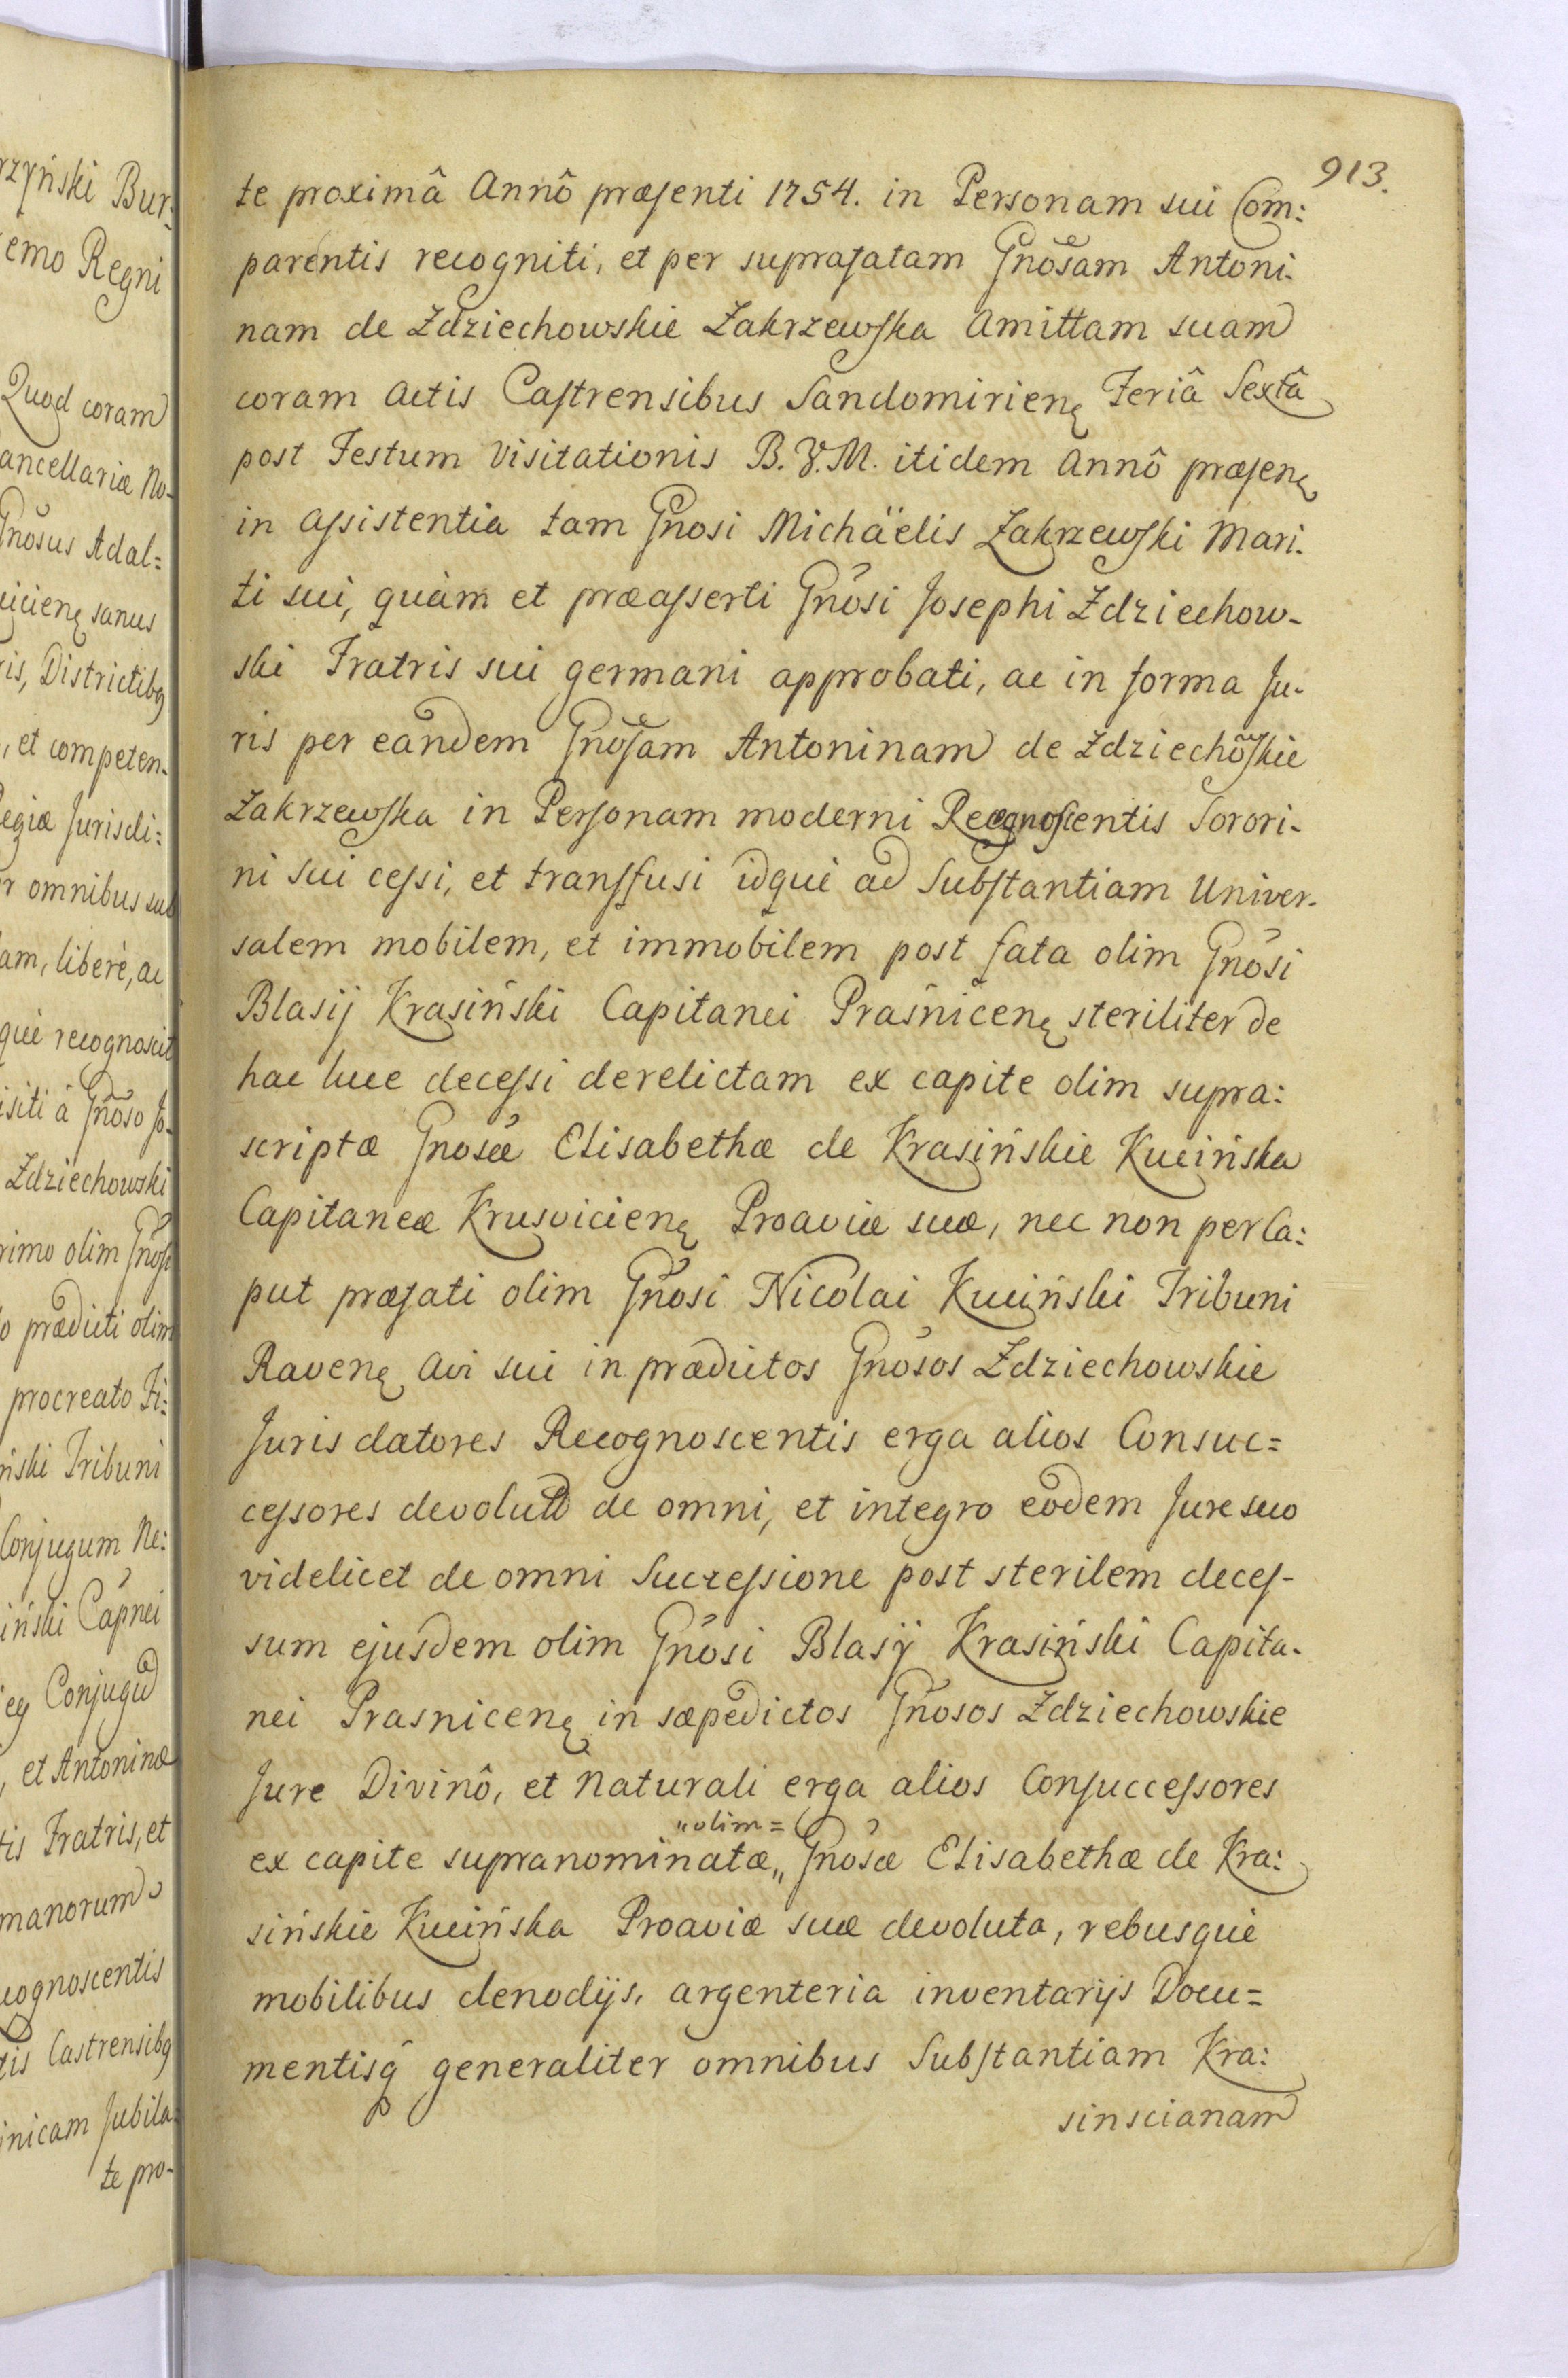 rzyński Bur:
emo Regni
Quod coram
ancellariæ No-
Gnosus Adal=
vicienę sanus
is, Districtibq
, et competen-
Regiæ Jurisdi:
r omnibus sub
am, liberè, ac
què recognoscit
isiti â Gnoso Jo-
Zdziechowski
rimo olim Gnosi
o prædicti olim
procreato Fi:
ński Tribuni
Conjugum Ne:
iński Capnei
Conjugū
, et Antoninæ
tis Fratris, et
manorum
cognoscentis
tis Castrensibq
inicam Jubila-
te pro-
913.
te proximâ Annô præsenti 1754. in Personam sui Com:
parentis recogniti, et per suprafatam Gnosam Antoni-
nam de Zdziechowskie Zakrzewska Amittam suam
coram Actis Castrensibus Sandomirienę Feriâ Sextâ
post Festum Visitationis B.V.M. itidem Annô præsenę
in assistentia tam Gnosi Michäelis Zakrzewski Mari-
ti sui, quàm et præasserti Gnosi Josephi Zdziechow-
ski Fratris sui germani approbati, ac in forma Ju-
ris per eandem Gnosam Antoninam de Zdziechõskie
Zakrzewska in Personam moderni Recognoscentis Sorori-
ni sui cessi, et transfusi idquè ad Substantiam Univer-
salem mobilem, et immobilem post fata olim Gnosi
Blasij Krasiński Capitanei Praśnicenę steriliter de
hac luce decessi derelictam ex capite olim supra:
scriptæ Gnosæ Elisabethæ de Krasińskie Kucińska
Capitaneæ Krusvicienę Proaviæ suæ, nec non per Ca:
put præfati olim Gnosi Nicolai Kuciński Tribuni
Ravenę Avi sui in prædictos Gnosos Zdziechowskie
Juris datores Recognoscentis erga alios Consuc=
cessores devolutū de omni, et integro eodem Jure suo
videlicet de omni Successione post sterilem deces-
sum ejusdem olim Gnosi Blasij Krasiński Capita-
nei Prasnicenę in sæpedictos Gnosos Zdziechowskie
Jure Divinô, et Naturali erga alios Consuccessores
"olim=
ex capite supranominatæ,, Gnosæ Elisabethæ de Kra:
sińskie Kucińska Proaviæ suæ devoluta, rebusquè
mobilibus clenodijs, argenteria inventarijs Docu=
mentisq̃ generaliter omnibus Substantiam Kra:
sinscianam